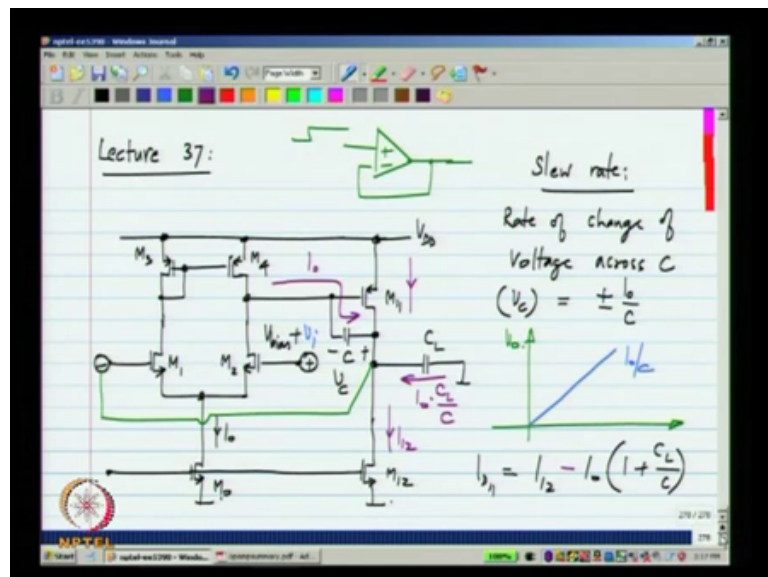 nptel-ee5390 - Windows Journal
File Edit View Insert Actions Tools Help
Page Width
B I
Lecture 37:
+
−
Slew rate:
Rate of change of
Voltage across C
(Vc) = ± I₀/C
V_DD
M3
M4
I₀
M11
M1
M2
V_bias + V_i
− C +
V_C
C_L
I₀ · C_L/C
I₀
I₁₂
M0
M12
V₀
I₀/C
I_D11 = I₁₂ − I₀ (1 + C_L/C)
NPTEL
270 / 270
270
start
nptel-ee5390 - Windo...
opampsummary.pdf - Ad...
100%
3:17 PM